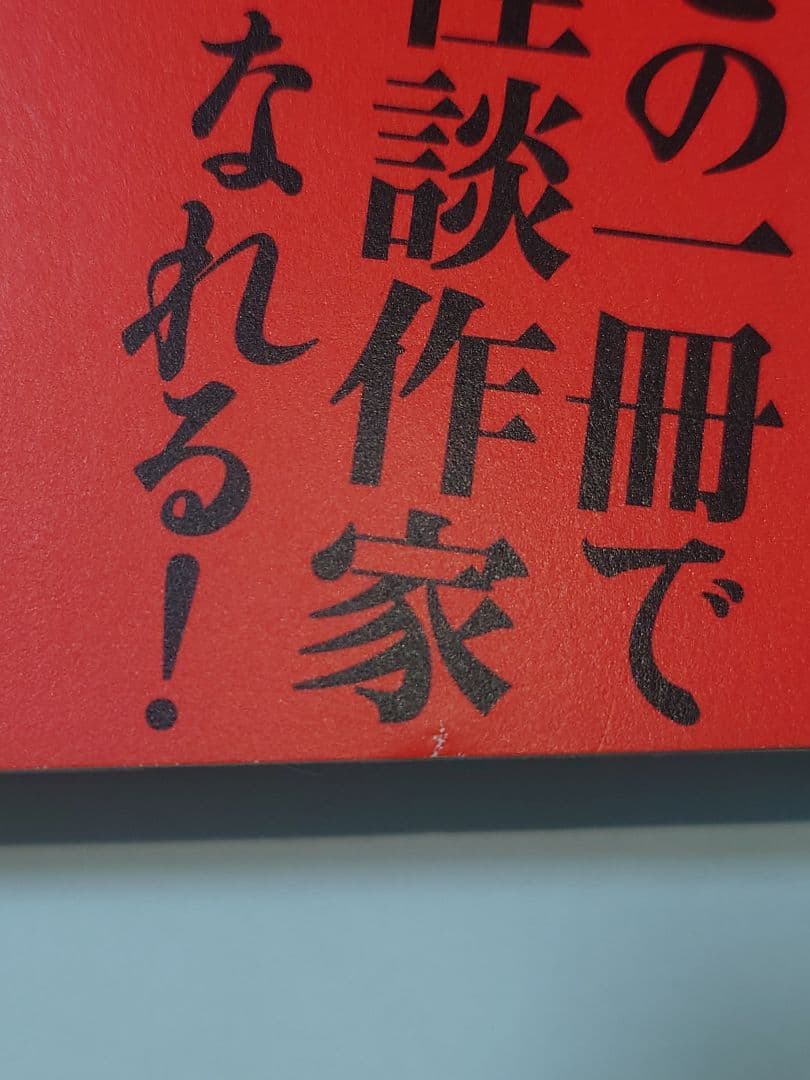 の一冊で
怪談作家
なれる！